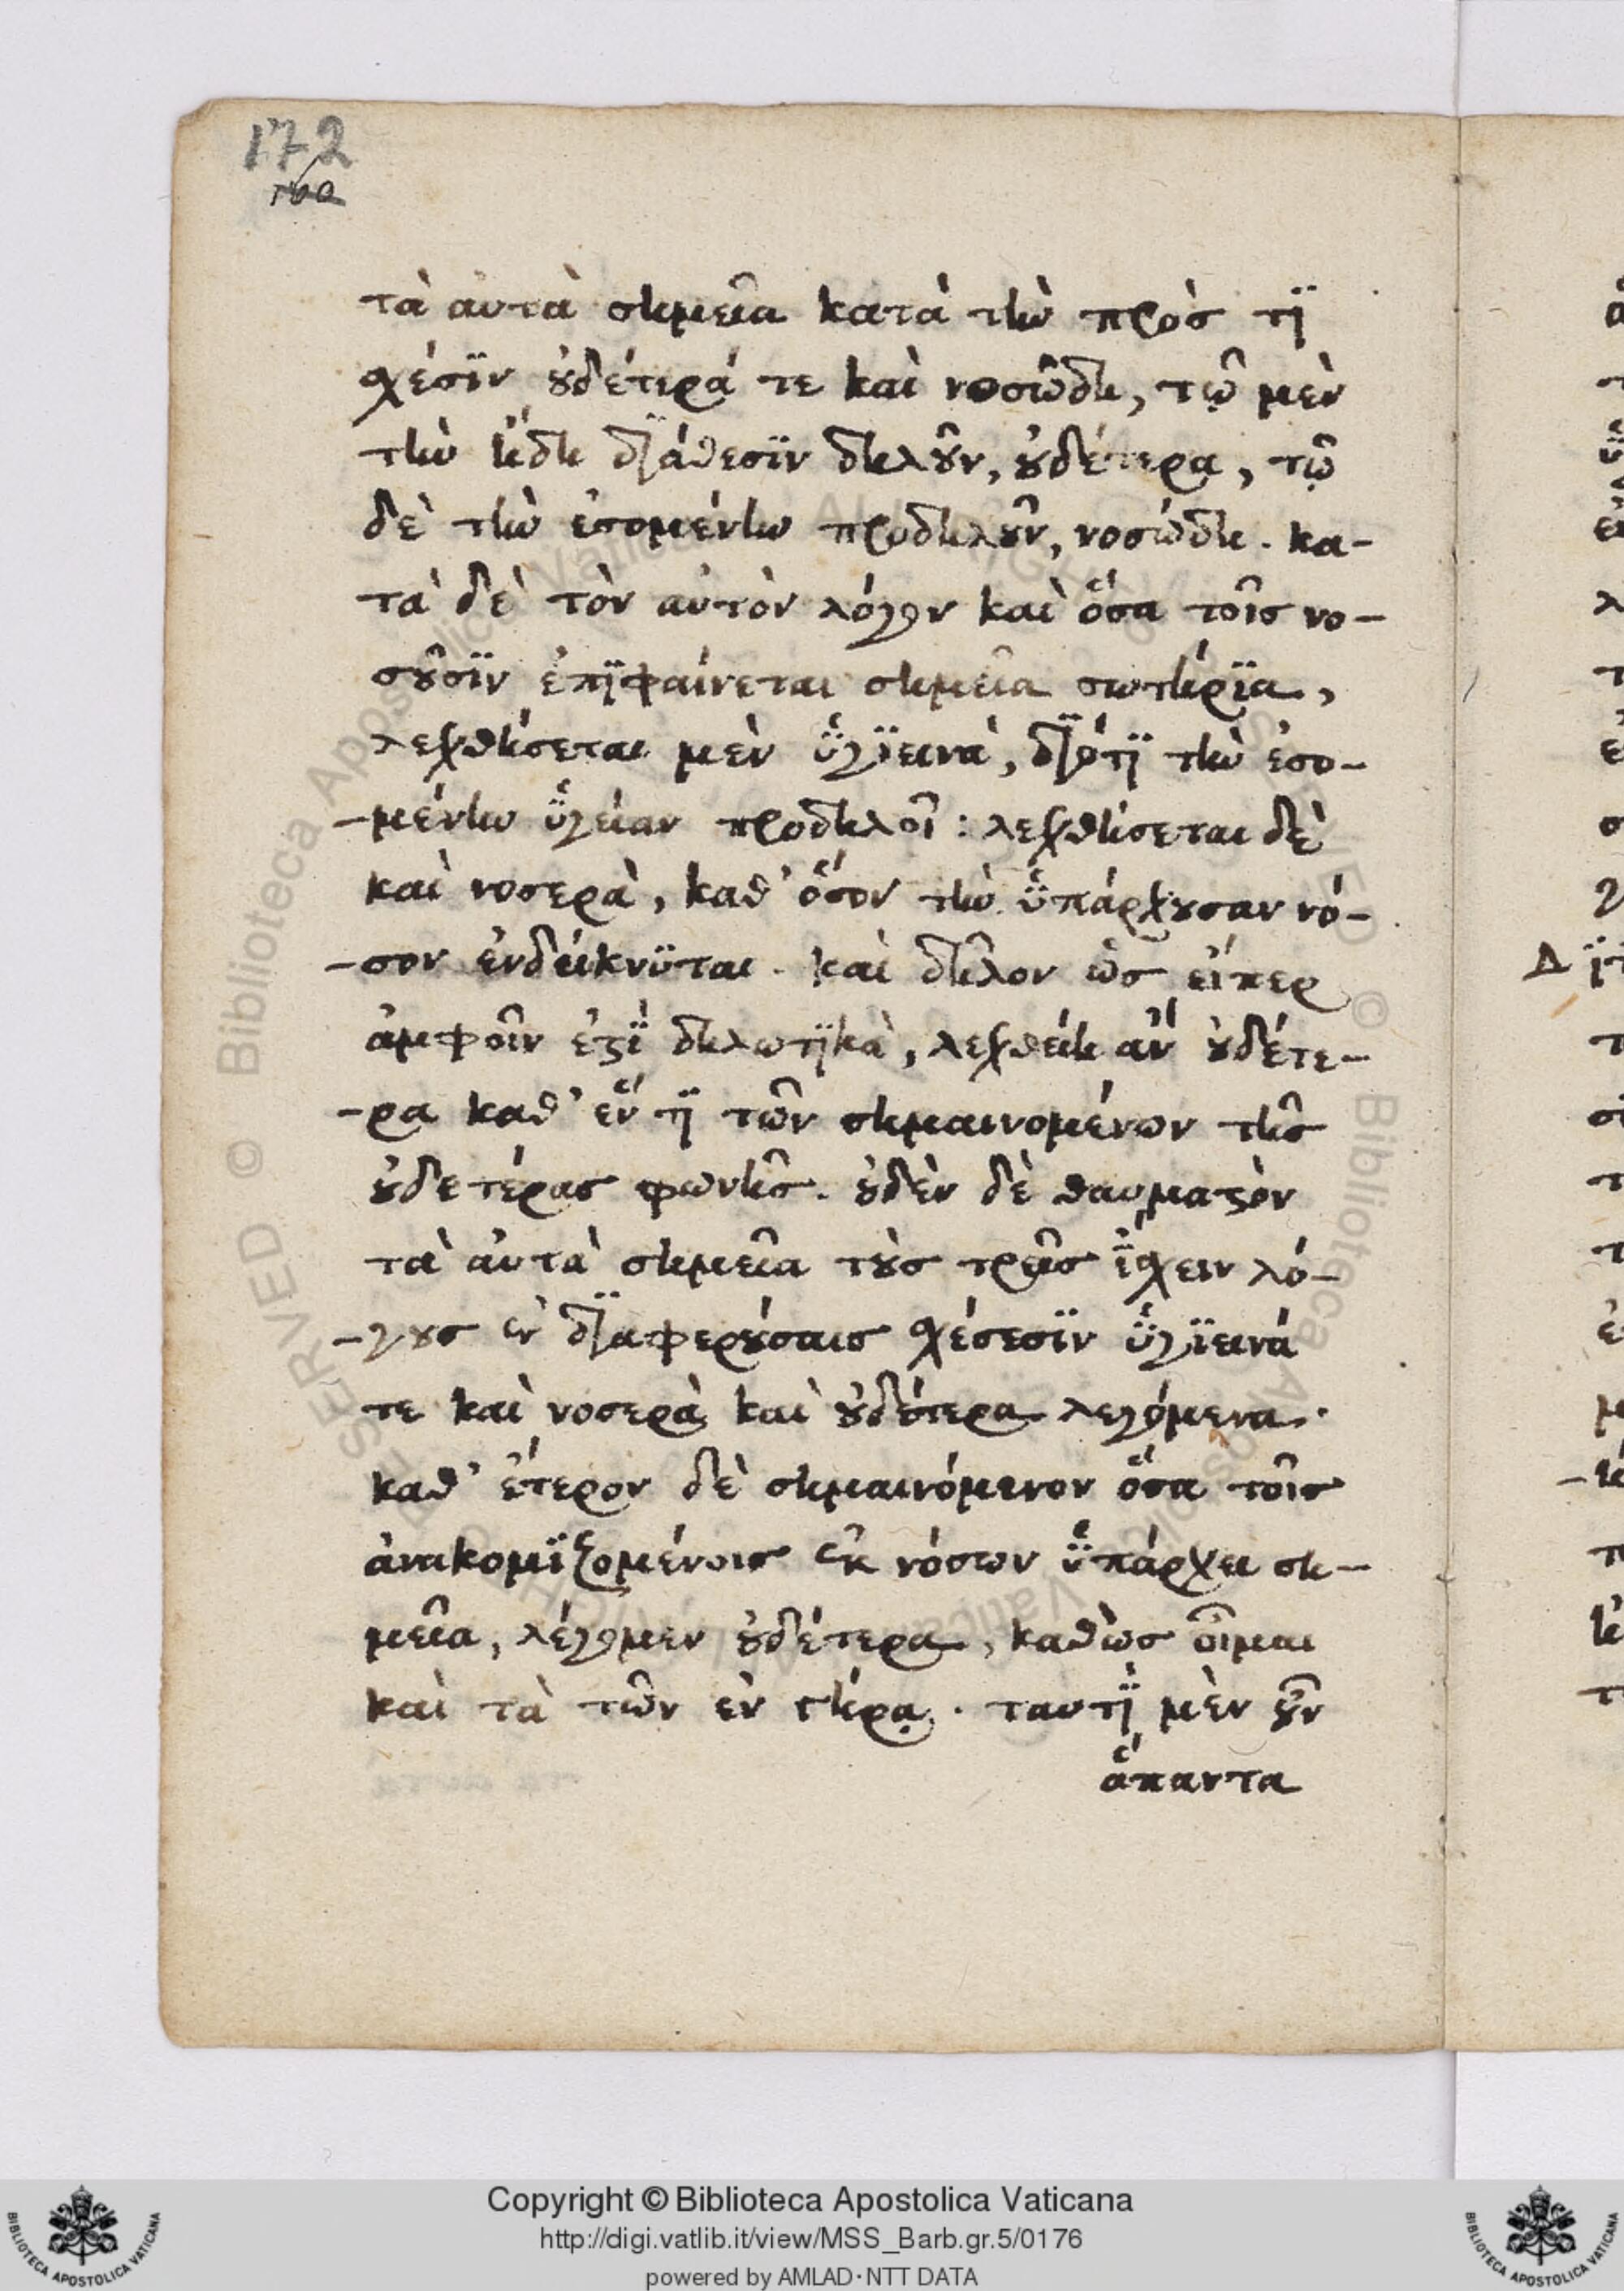 172
τὰ αὐτὰ σημεῖα κατὰ τὴν πρὸς τϊ
σχέσϊν οὐδέτερά τε καὶ νοσώδη, τῷ μὲν
τὴν ἤδη δϊάθεσϊν δηλοῦν, οὐδέτερα, τῷ
δὲ τὴν ἐσομένην προδηλοῦν, νοσώδη. κα-
τὰ δὲ τὸν αὐτὸν λόγον καὶ ὅσα τοῖς νο-
σοῦσϊν ἐπϊφαίνεται σημεῖα σωτήρϊα,
λεχθήσεται μὲν ὑγϊεινὰ, δϊότϊ τὴν ἐσο-
-μένην ὑγείαν προδηλοῖ: λεχθήσεται δὲ
καὶ νοσερὰ, καθ' ὅσον τὴν ὑπάρχουσαν νό-
-σον ἐνδείκνϋται. καὶ δῆλον ὡς εἴπερ
ἀμφοῖν ἐστὶ δηλωτϊκὰ, λεχθείη ἂν οὐδέτε-
-ρα καθ' ἕν τϊ τῶν σημαινομένων τῆς
οὐδετέρας φωνῆς. οὐδὲν δὲ θαυμαστὸν
τὰ αὐτὰ σημεῖα τοὺς τρεῖς ἴσχειν λό-
-γους ἐν δϊαφερούσαις σχέσεσϊν ὑγϊεινά
τε καὶ νοσερὰ καὶ οὐδέτερα λεγόμενα.
καθ' ἕτερον δὲ σημαινόμενον ὅσα τοῖς
ἀνακομϊζομένοις ἐκ νόσων ὑπάρχει ση-
μεῖα, λέγομεν οὐδέτερα, καθὼς οἶμαι
καὶ τὰ τῶν ἐν γήρᾳ. ταυτῒ μὲν οὖν
ἅπαντα
Copyright © Biblioteca Apostolica Vaticana
http://digi.vatlib.it/view/MSS_Barb.gr.5/0176
powered by AMLAD·NTT DATA